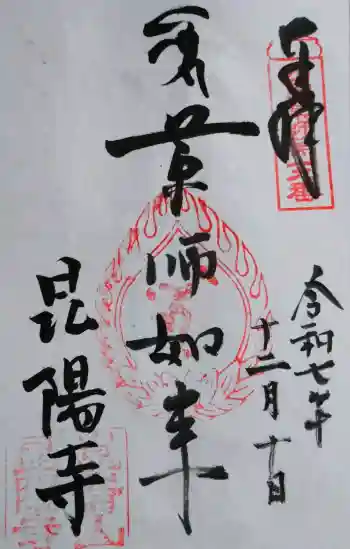 奉拝
令和七年
十二月十日
薬師如来
昆陽寺